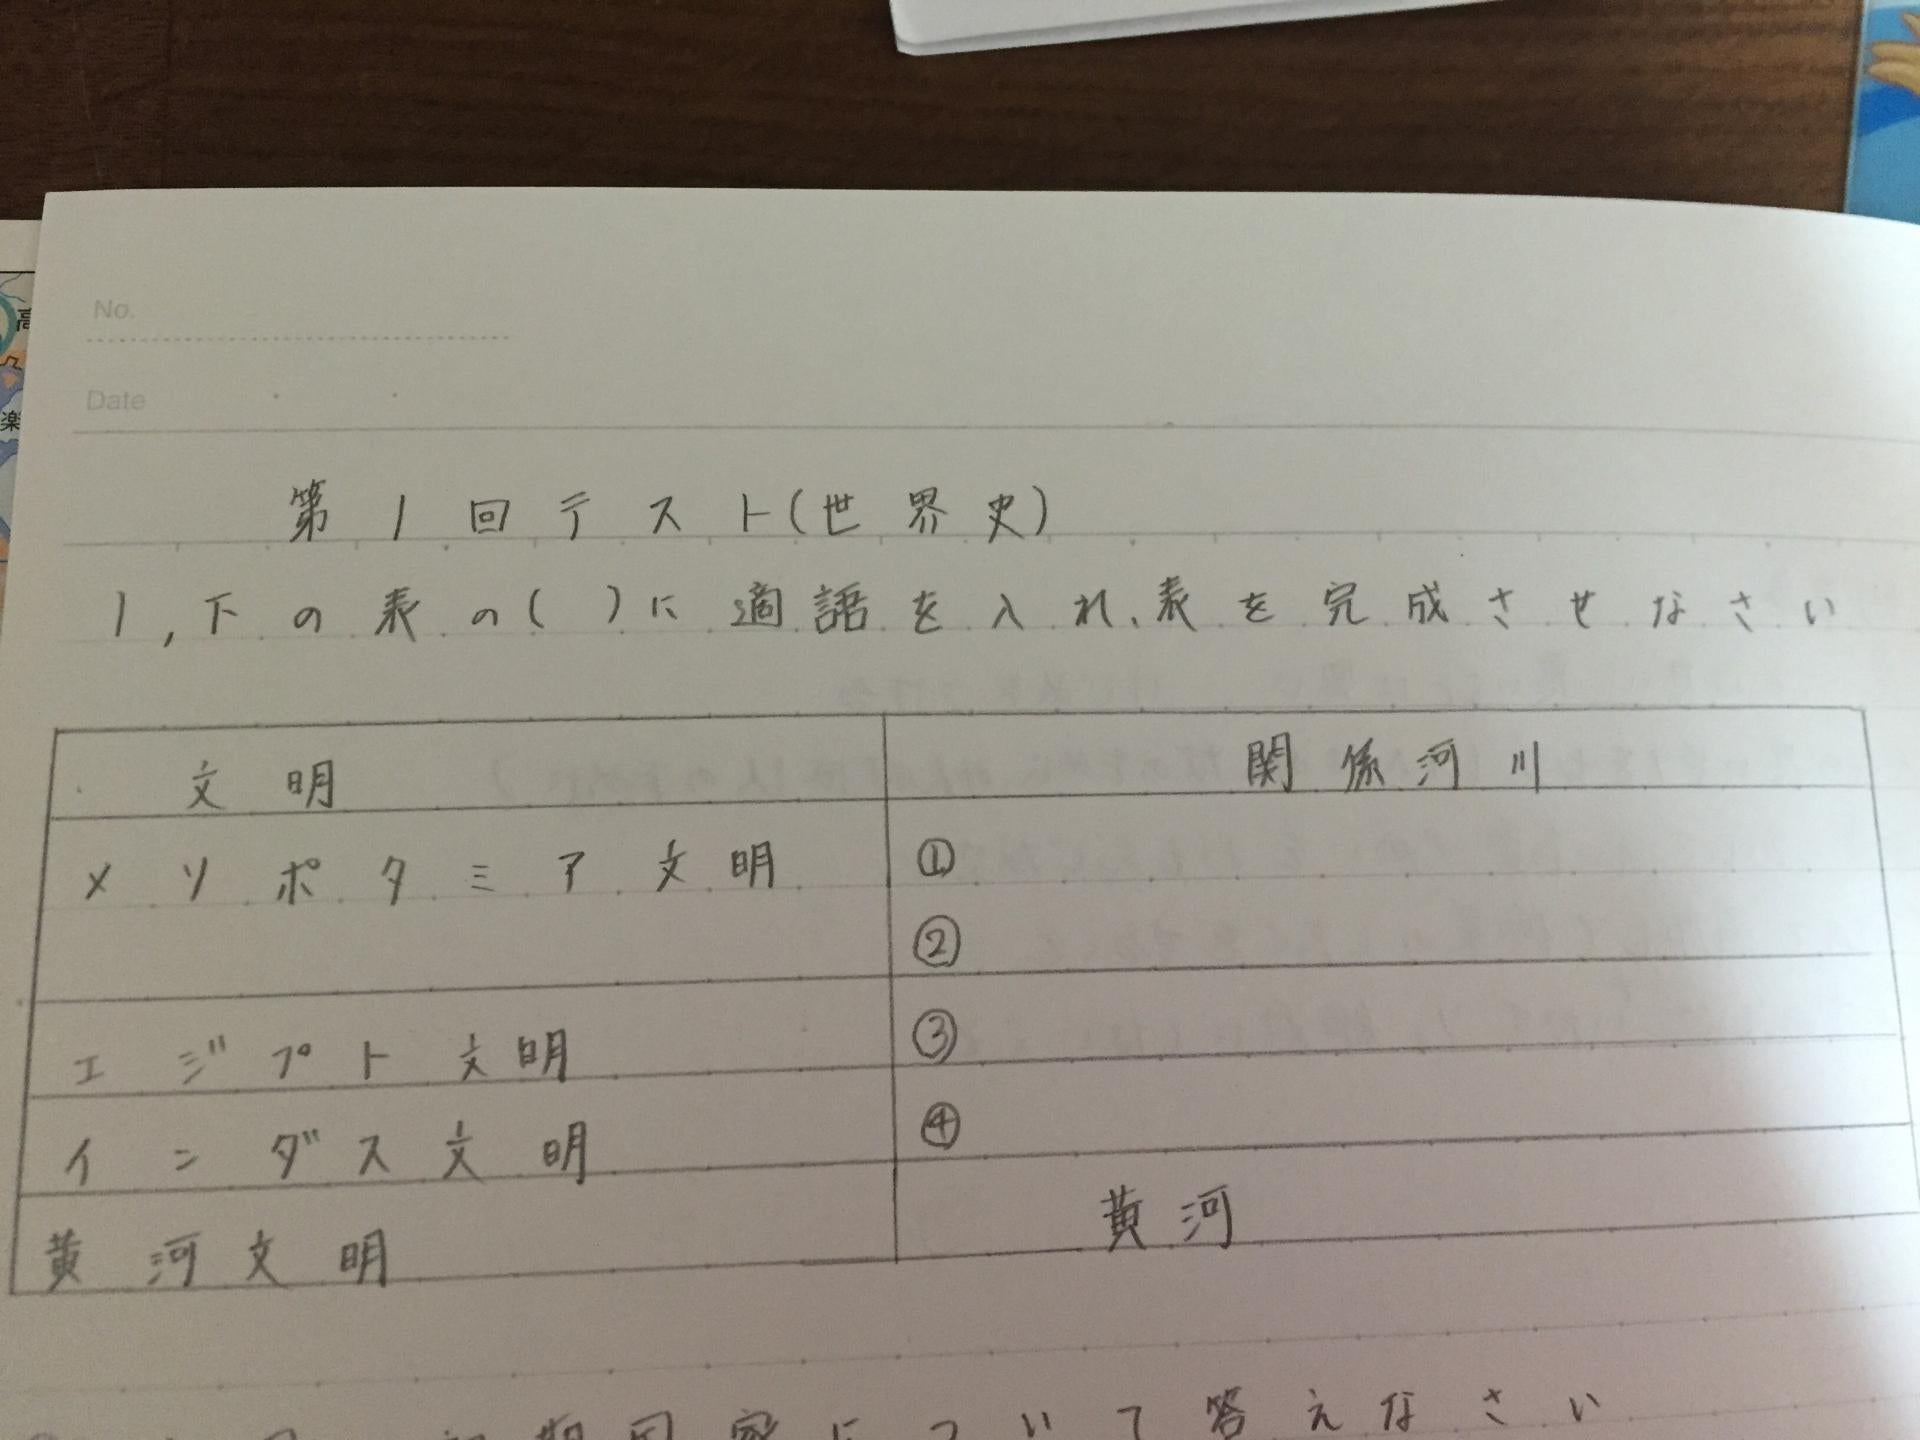 高
楽
No.
Date
第1回テスト(世界史)
1,下の表の( )に適語を入れ、表を完成させなさい
文明 関係河川
メソポタミア文明 ①
②
エジプト文明 ③
インダス文明 ④
黄河文明 黄河
期国家について答えなさい